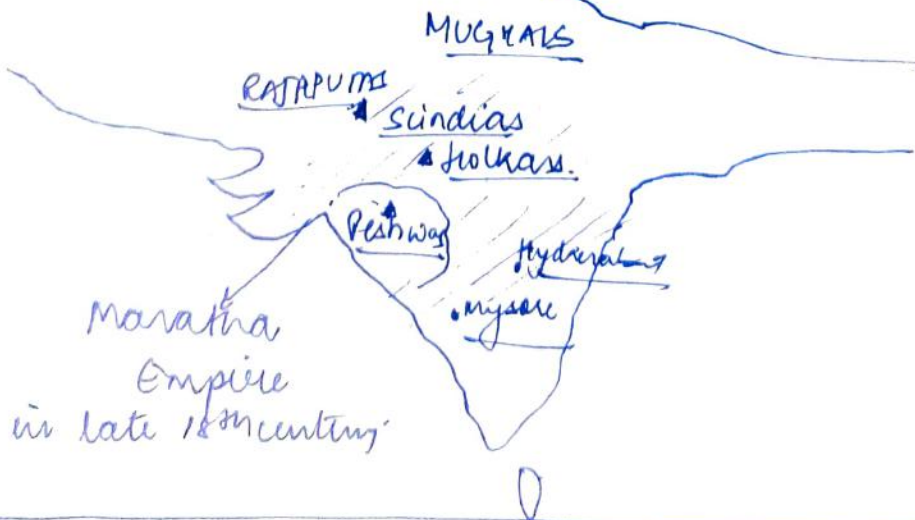 MUGHALS
RAJAPUTAS
Scindias
Holkars.
Peshwas
Hyderabad
.Mysore
Maratha
Empire
in late 18th century